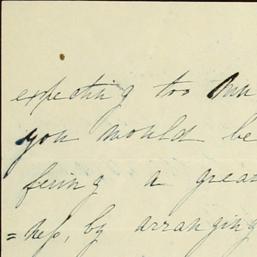 expecting too mu
you would be
fering a grea
=ness, by arranging